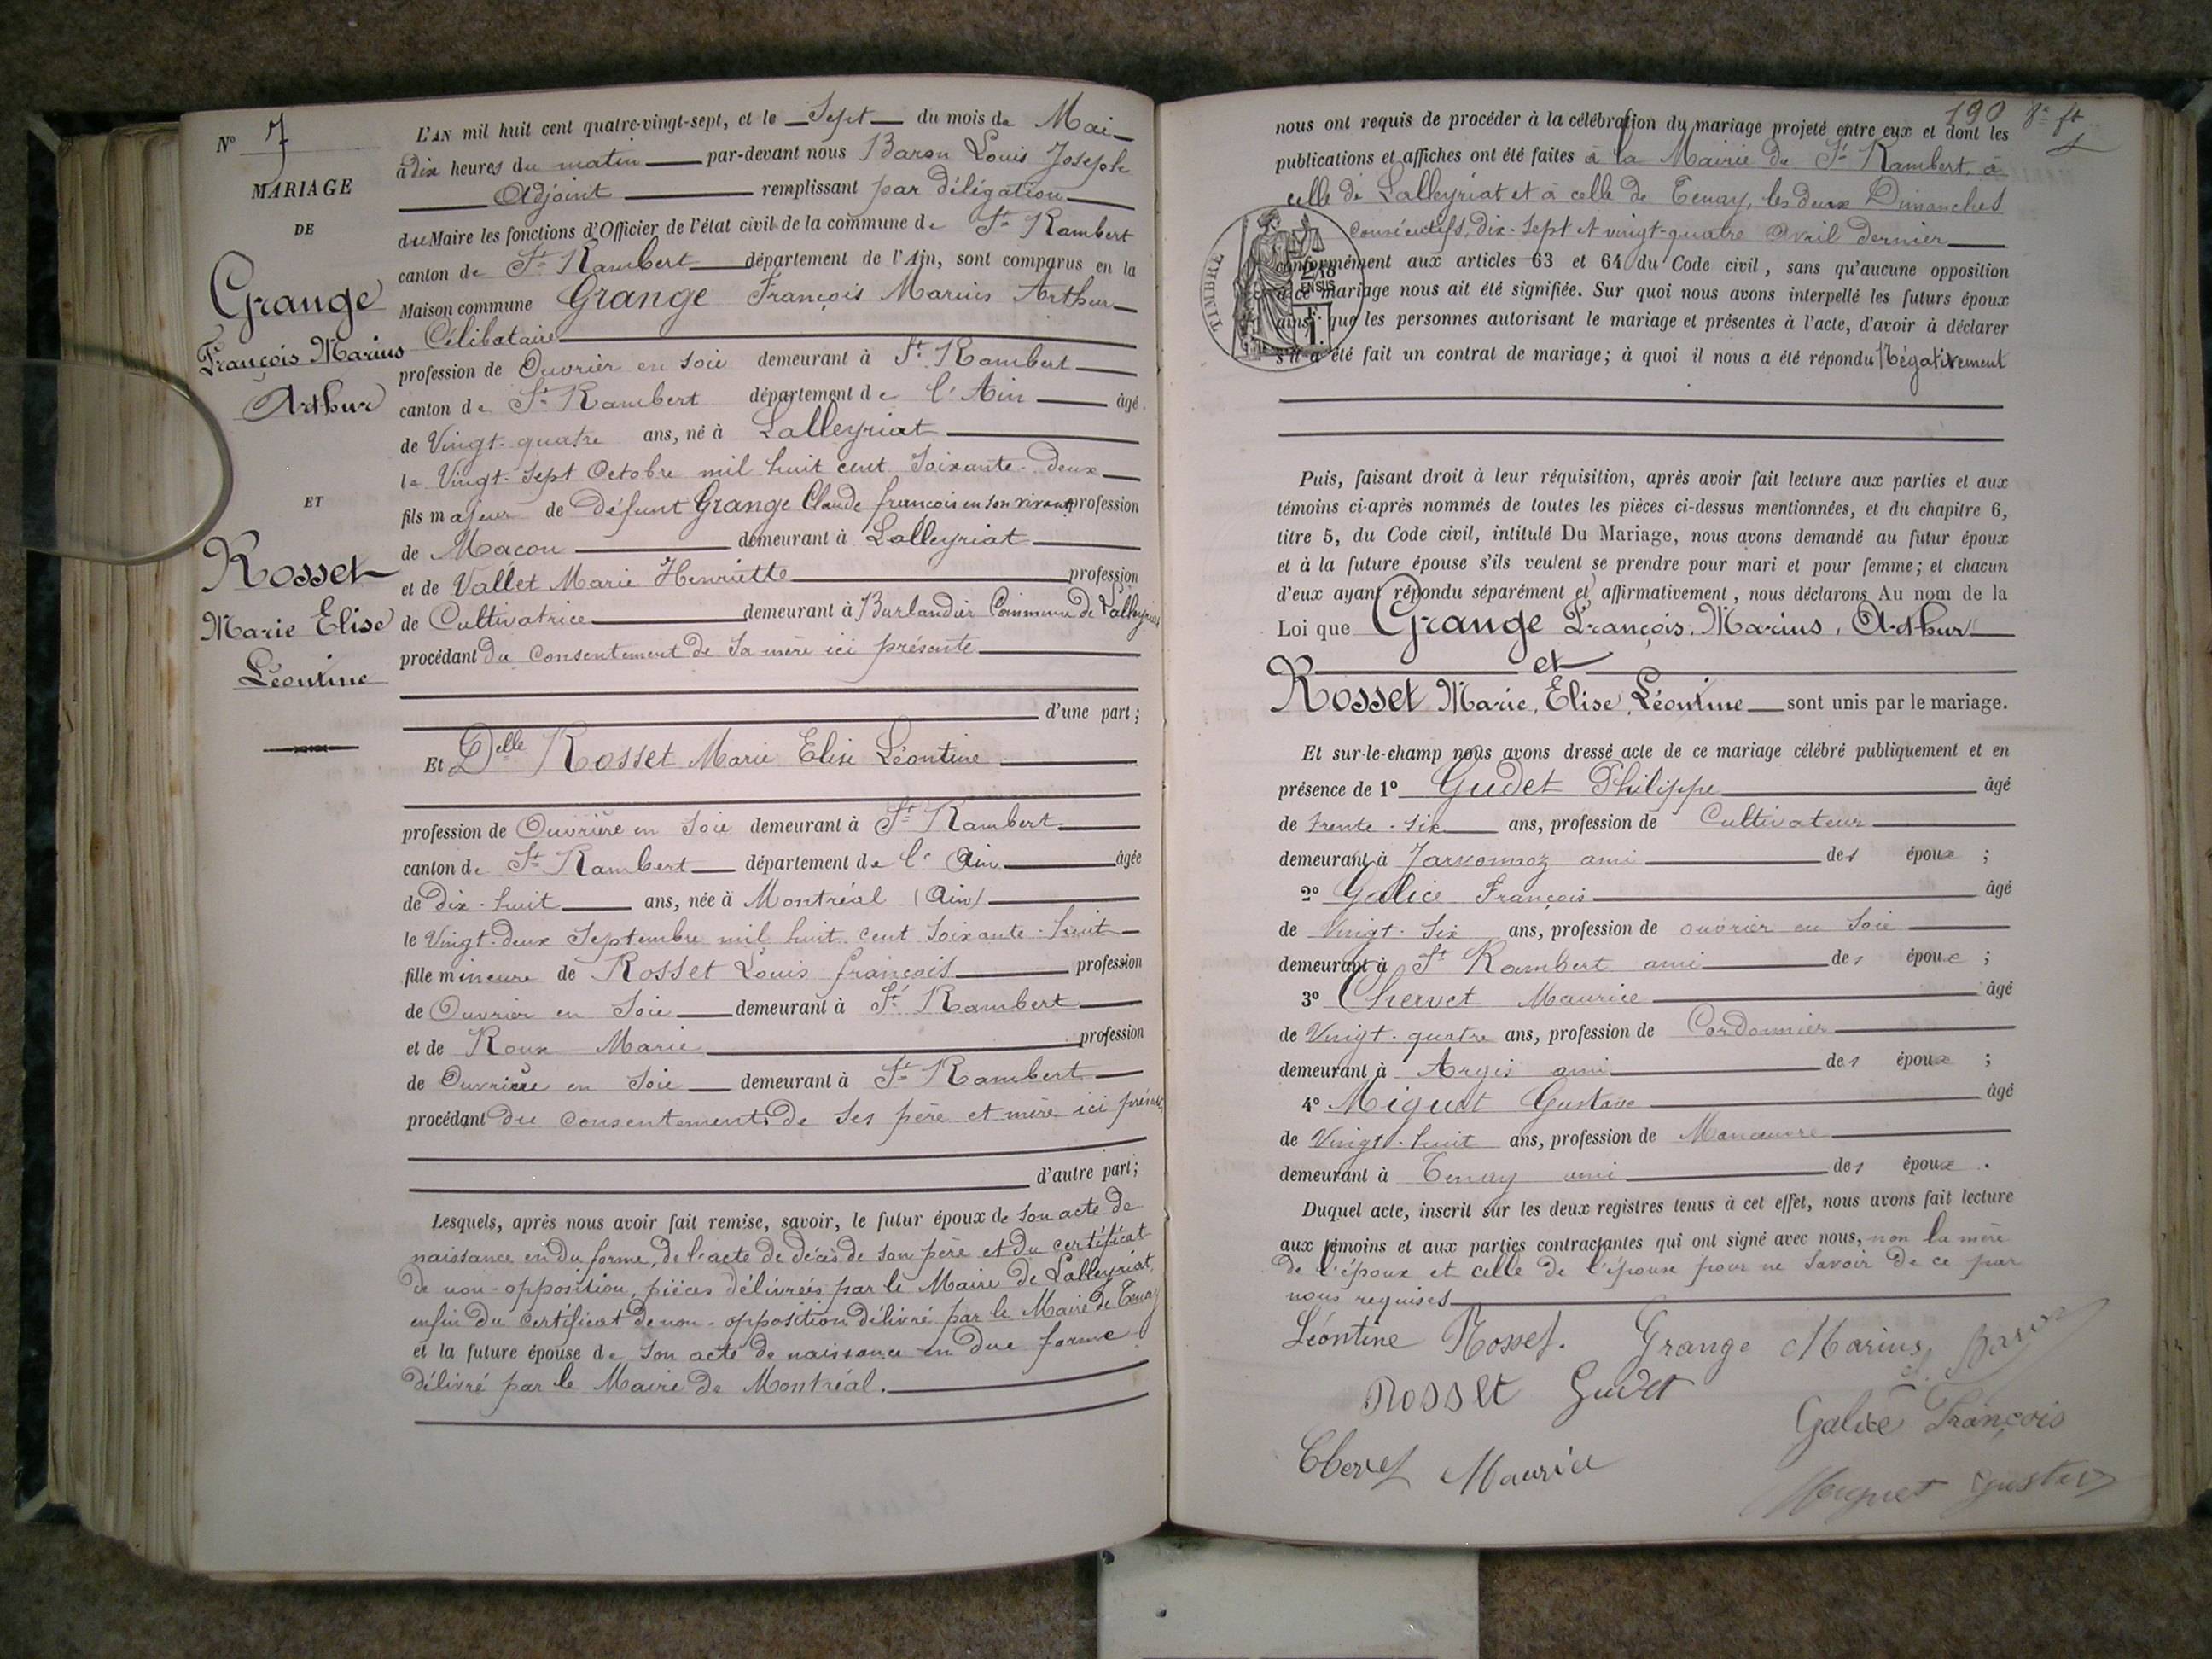 N° 7
MARIAGE
DE
Grange
François Marius
Arthur
ET
Rosset
Marie Elise
Léontine
L'AN mil huit cent quatre-vingt-sept, et le Sept du mois de Mai
à dix heures du matin par-devant nous Baron Louis Joseph
Adjoint remplissant par délégation
du Maire les fonctions d'Officier de l'état civil de la commune de St Rambert
canton de St Rambert département de l'Ain, sont comparus en la
Maison commune Grange François Marius Arthur
Célibataire
profession de Ouvrier en soie demeurant à St Rambert
canton de St Rambert département de l'Ain âgé
de Vingt-quatre ans, né à Lalleyriat
le Vingt-sept Octobre mil huit cent soixante-deux
fils majeur de défunt Grange Claude françois en son vivant profession
de Maçon demeurant à Lalleyriat
et de Vallet Marie Henriette profession
de Cultivatrice demeurant à Burlandier Commune de Lalleyriat
procédant du consentement de sa mère ici présente
d'une part;
Et Delle Rosset Marie Elise Léontine
profession de Ouvrière en soie demeurant à St Rambert
canton de St Rambert département de l'Ain âgée
de dix-huit ans, née à Montréal (Ain)
le Vingt-deux Septembre mil huit cent soixante-huit
fille mineure de Rosset Louis françois profession
de Ouvrier en Soie demeurant à St Rambert
et de Roux Marie profession
de Ouvrière en Soie demeurant à St Rambert
procédant du consentement de ses père et mère ici présents
d'autre part;
Lesquels, après nous avoir fait remise, savoir, le futur époux de son acte de
naissance en du forme, de l'acte de décès de son père et du certificat
de non-opposition, pièces délivrées par le Maire de Lalleyriat,
enfin du certificat de non-opposition délivré par le Maire de Tenay
et la future épouse de son acte de naissance en due forme
délivré par le Maire de Montréal.
190
nous ont requis de procéder à la célébration du mariage projeté entre eux et dont les
publications et affiches ont été faites à la Mairie de St Rambert, à
celle de Lalleyriat et à celle de Tenay, les deux Dimanches
consécutifs, dix-sept et vingt-quatre Avril dernier
TIMBRE
conformément aux articles 63 et 64 du Code civil, sans qu'aucune opposition
à ce mariage nous ait été signifiée. Sur quoi nous avons interpellé les futurs époux
ainsi que les personnes autorisant le mariage et présentes à l'acte, d'avoir à déclarer
s'il a été fait un contrat de mariage; à quoi il nous a été répondu Négativement
Puis, faisant droit à leur réquisition, après avoir fait lecture aux parties et aux
témoins ci-après nommés de toutes les pièces ci-dessus mentionnées, et du chapitre 6,
titre 5, du Code civil, intitulé Du Mariage, nous avons demandé au futur époux
et à la future épouse s'ils veulent se prendre pour mari et pour femme; et chacun
d'eux ayant répondu séparément et affirmativement, nous déclarons Au nom de la
Loi que Grange François, Marius, Arthur
et
Rosset Marie, Elise, Léontine sont unis par le mariage.
Et sur-le-champ nous avons dressé acte de ce mariage célébré publiquement et en
présence de 1° Gudet Philippe âgé
de trente-six ans, profession de Cultivateur
demeurant à Jarvonnoz ami des époux ;
2° Galice François âgé
de Vingt-six ans, profession de ouvrier en soie
demeurant à St Rambert ami des époux ;
3° Chervet Maurice âgé
de Vingt-quatre ans, profession de Cordonnier
demeurant à Argis ami des époux ;
4° Miguet Gustave âgé
de Vingt-huit ans, profession de Manœuvre
demeurant à Tenay ami des époux .
Duquel acte, inscrit sur les deux registres tenus à cet effet, nous avons fait lecture
aux témoins et aux parties contractantes qui ont signé avec nous, non la mère
de l'époux et celle de l'épouse pour ne savoir de ce par
nous requises
Léontine Rosset. Grange Marius Baron
Rosset Gudet
Galice François
Chervet Maurice
Miguet Gustave